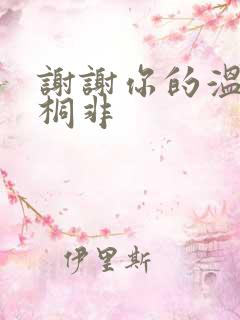 謝謝你的溫
桐非
伊里斯